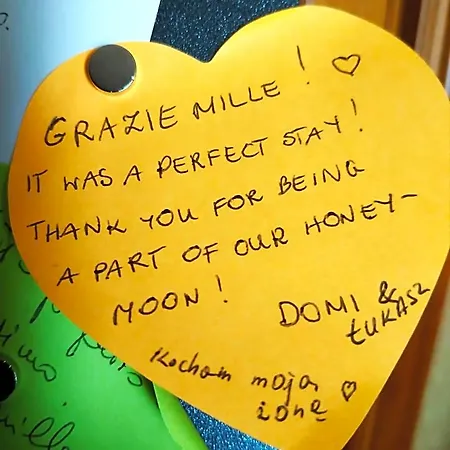 GRAZIE MILLE! ♡
IT WAS A PERFECT STAY!
THANK YOU FOR BEING
A PART OF OUR HONEY-
MOON!
DOMI &
ŁUKASZ
Kocham moją
żonę ♡